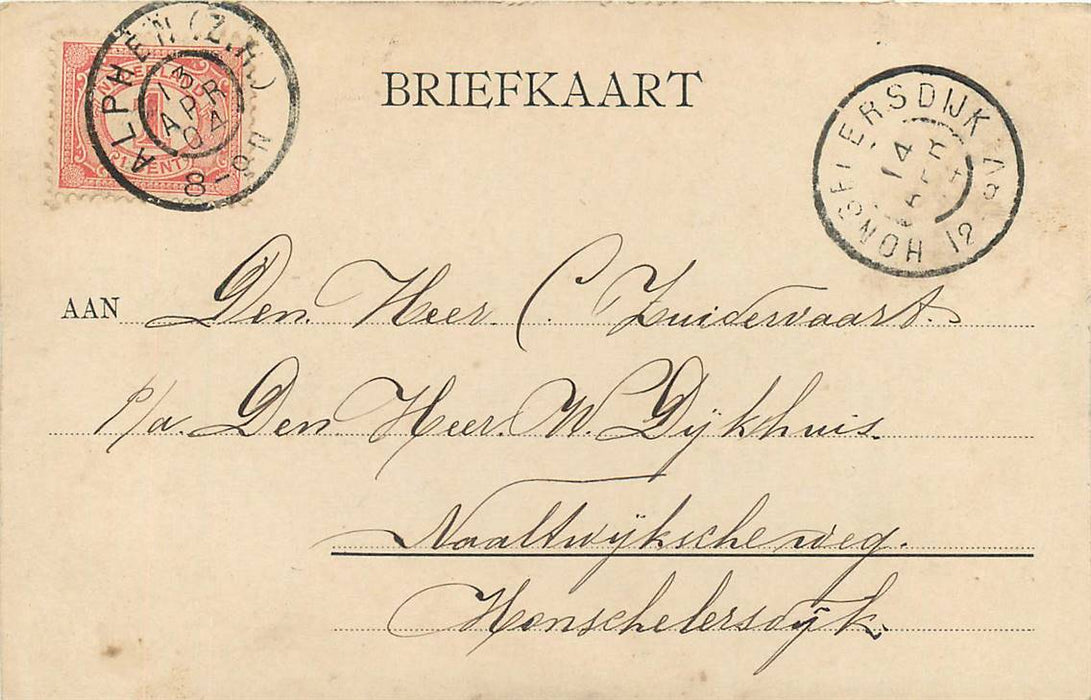 ALPHEN (Z.H.)
13
APR
04
8-9N
NEDERLAND
1
CENT
BRIEFKAART
HONSELERSDIJK
14
APR
04
12
AAN Den Heer C. Zuidervaart.
p/a. Den Heer. W. Dijkhuis.
Naaltwijksche weg.
Honschelersdijk.